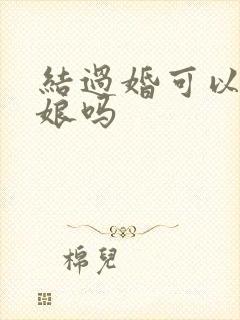 結過婚可以
娘吗
棉兒